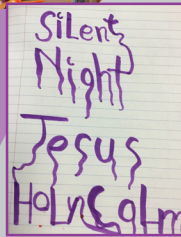 SiLent
Night
Jesus
HoLnCaLm